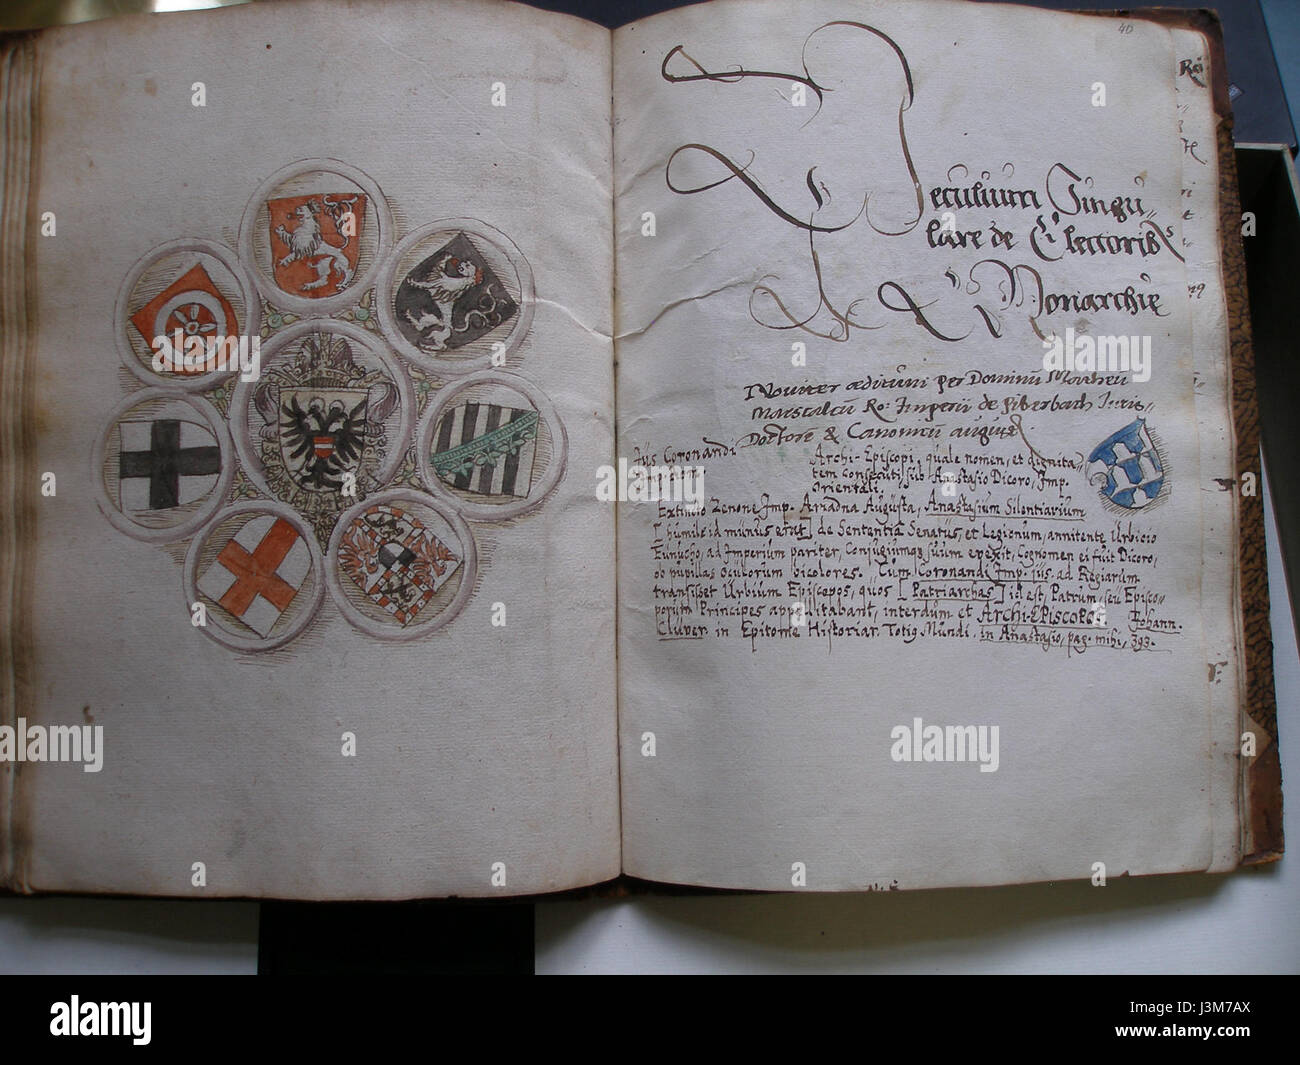 40
Peculium Singu-
lare de Electoribus
& Monarchie
Noviter æditum per Dominum Matheu
Marscalcu Ro: Imperii de Biberbach Iuris-
Doctore & Canonicu august
Jus Coronandi
Imp. Rom.
Archi-Episcopi, quale nomen, et dignita,
tem consecuti, sub Anastasio Dicoro, Imp.
Orientali.
Extincto Zenone Imp. Ariadna Augusta, Anastasium Silentiarium
[humile id munus erat] de Sententia Senatus, et Legionum, annitente Urbicio
Eunucho, ad Imperium pariter, Conjugiumq suum evexit, Cognomen ei fuit Dicoro,
ob pupillas oculorum bicolores. Cum Coronandi Imp. jus, ad Regiarum
transisset Urbium Episcopos, quos [Patriarchas] id est, Patrum, seu Episco-
porum Principes appellitabant, interdum et Archi-Episcopos. Johann.
Cluver in Epitome Historiar. Totig Mundi, in Anastasio, pag. mihi, 393.
Roi
alamy
alamy
Image ID: J3M7AX
www.alamy.com